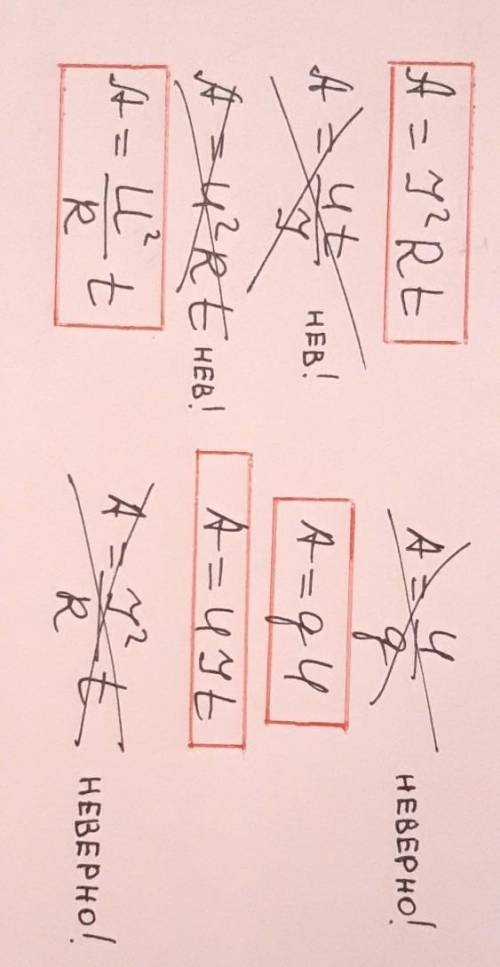 A = I²Rt
A = Ut/I НЕВ!
A = U²Rt НЕВ!
A = U²/R t
A = U/q НЕВЕРНО!
A = qU
A = UIt
A = I²/R t НЕВЕРНО!